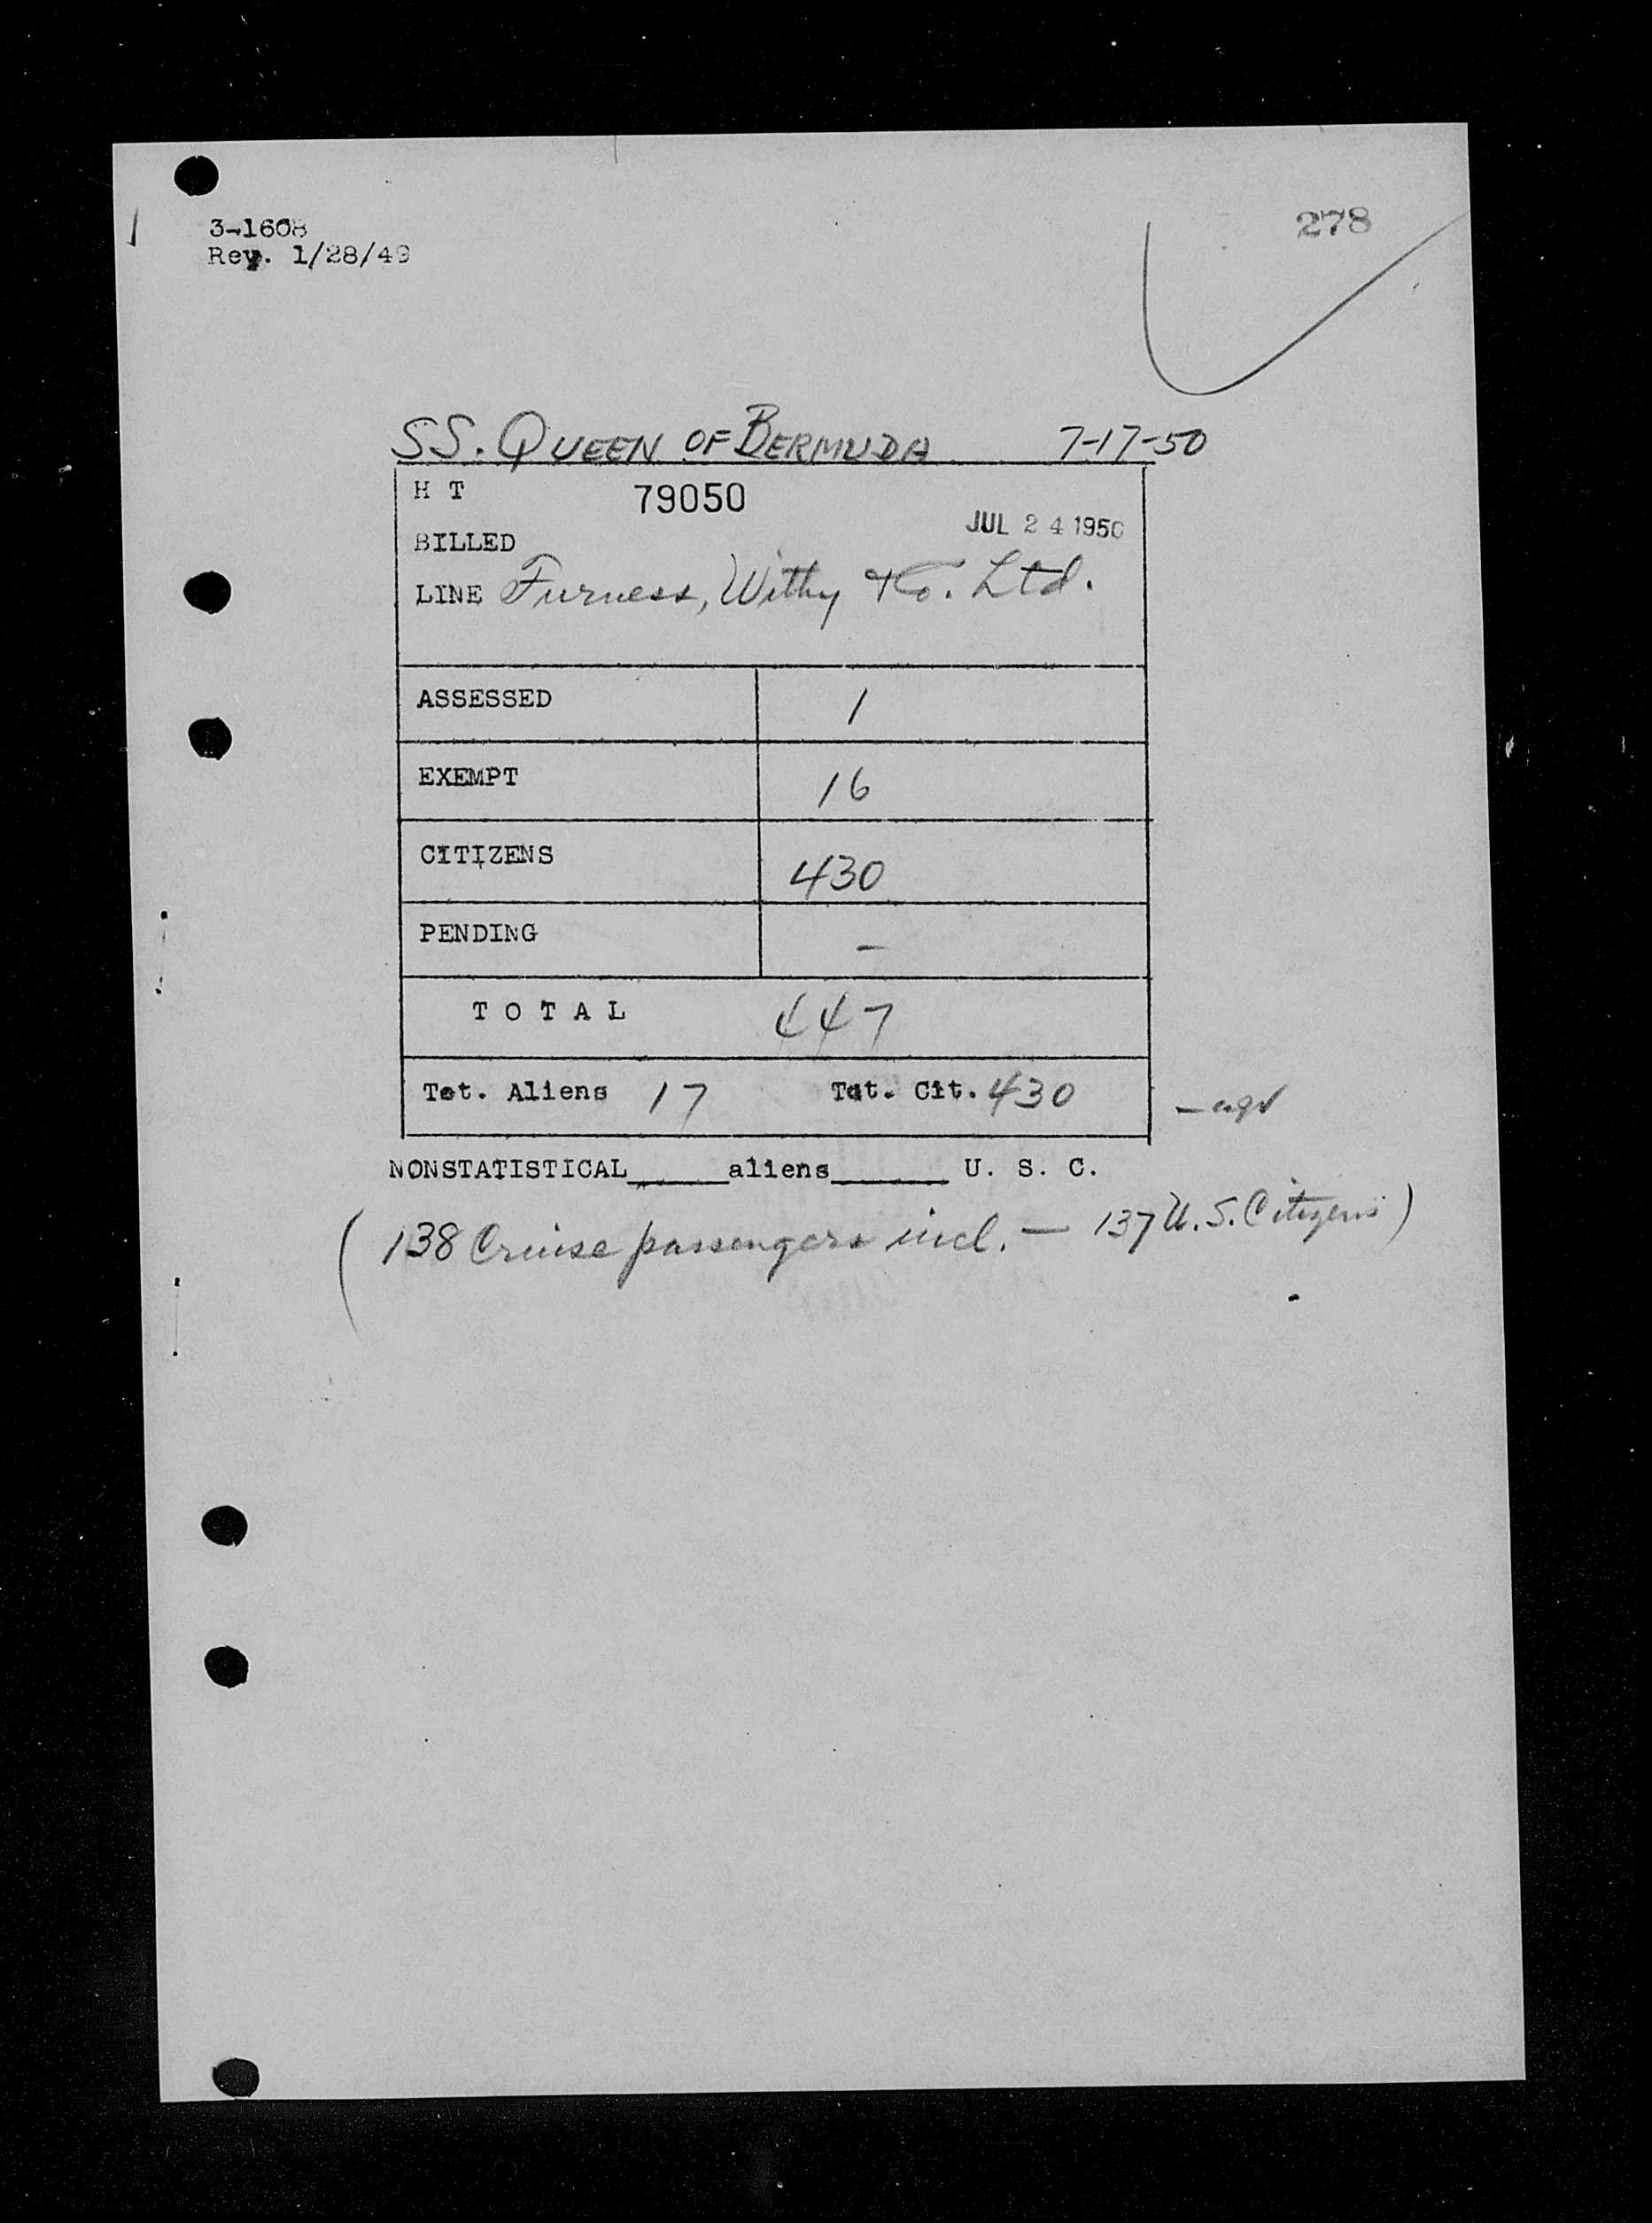 278
3-1608
Rev. 1/28/49
SS. QUEEN OF BERMUDA 7-17-50
H T 79050
JUL 24 1950
BILLED
LINE Furness, Withy & Co. Ltd.
ASSESSED 1
EXEMPT 16
CITIZENS 430
PENDING -
TOTAL 447
Tot. Aliens 17 Tot. Cit. 430
NONSTATISTICAL_____aliens______ U. S. C.
(138 Cruise passengers incl. — 137 U.S. Citizens)